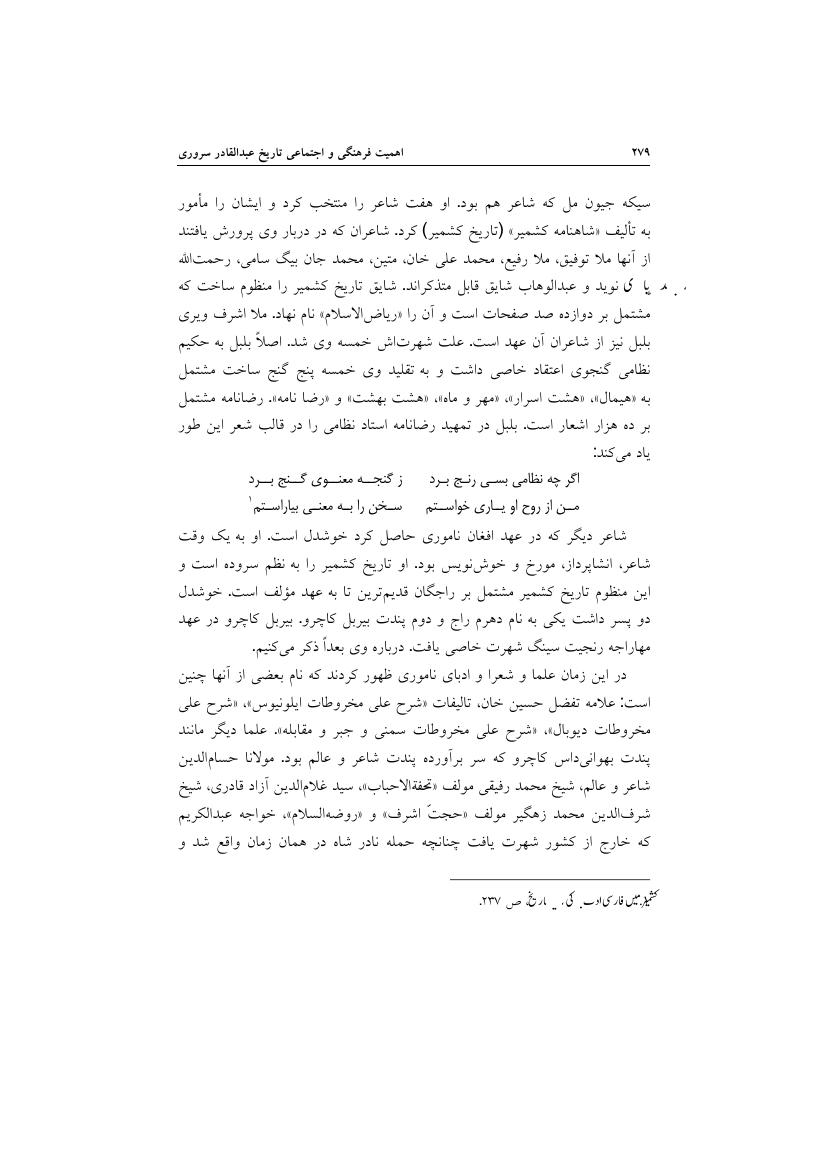 ۲۷۹ اهمیت فرهنگی و اجتماعی تاریخ عبدالقادر سروری
سیکه جیون مل که شاعر هم بود. او هفت شاعر را منتخب کرد و ایشان را مأمور
به تألیف «شاهنامه کشمیر» (تاریخ کشمیر) کرد. شاعران که در دربار وی پرورش یافتند
از آنها ملا توفیق، ملا رفیع، محمد علی خان، متین، محمد جان بیگ سامی، رحمت‌الله
نوید و عبدالوهاب شایق قابل متذکراند. شایق تاریخ کشمیر را منظوم ساخت که
مشتمل بر دوازده صد صفحات است و آن را «ریاض‌الاسلام» نام نهاد. ملا اشرف ویری
بلبل نیز از شاعران آن عهد است. علت شهرت‌اش خمسه وی شد. اصلاً بلبل به حکیم
نظامی گنجوی اعتقاد خاصی داشت و به تقلید وی خمسه پنج گنج ساخت مشتمل
به «هیمال»، «هشت اسرار»، «مهر و ماه»، «هشت بهشت» و «رضا نامه». رضانامه مشتمل
بر ده هزار اشعار است. بلبل در تمهید رضانامه استاد نظامی را در قالب شعر این طور
یاد می‌کند:
اگر چه نظامی بسی رنج برد ز گنجه معنوی گنج برد
من از روح او یاری خواستم سخن را به معنی بیاراستم۱
شاعر دیگر که در عهد افغان ناموری حاصل کرد خوشدل است. او به یک وقت
شاعر، انشاپرداز، مورخ و خوش‌نویس بود. او تاریخ کشمیر را به نظم سروده است و
این منظوم تاریخ کشمیر مشتمل بر راجگان قدیم‌ترین تا به عهد مؤلف است. خوشدل
دو پسر داشت یکی به نام دهرم راج و دوم پندت بیربل کاچرو. بیربل کاچرو در عهد
مهاراجه رنجیت سینگ شهرت خاصی یافت. درباره وی بعداً ذکر می‌کنیم.
در این زمان علما و شعرا و ادبای ناموری ظهور کردند که نام بعضی از آنها چنین
است: علامه تفضل حسین خان، تالیفات «شرح علی مخروطات ایلونیوس»، «شرح علی
مخروطات دیوبال»، «شرح علی مخروطات سمنی و جبر و مقابله». علما دیگر مانند
پندت بهوانی‌داس کاچرو که سر برآورده پندت شاعر و عالم بود. مولانا حسام‌الدین
شاعر و عالم، شیخ محمد رفیقی مولف «تحفةالاحباب»، سید غلام‌الدین آزاد قادری، شیخ
شرف‌الدین محمد زهگیر مولف «حجتّ اشرف» و «روضه‌السلام»، خواجه عبدالکریم
که خارج از کشور شهرت یافت چنانچه حمله نادر شاه در همان زمان واقع شد و
کشمیر میں فارسی ادب کی تاریخ، ص ۲۳۷.